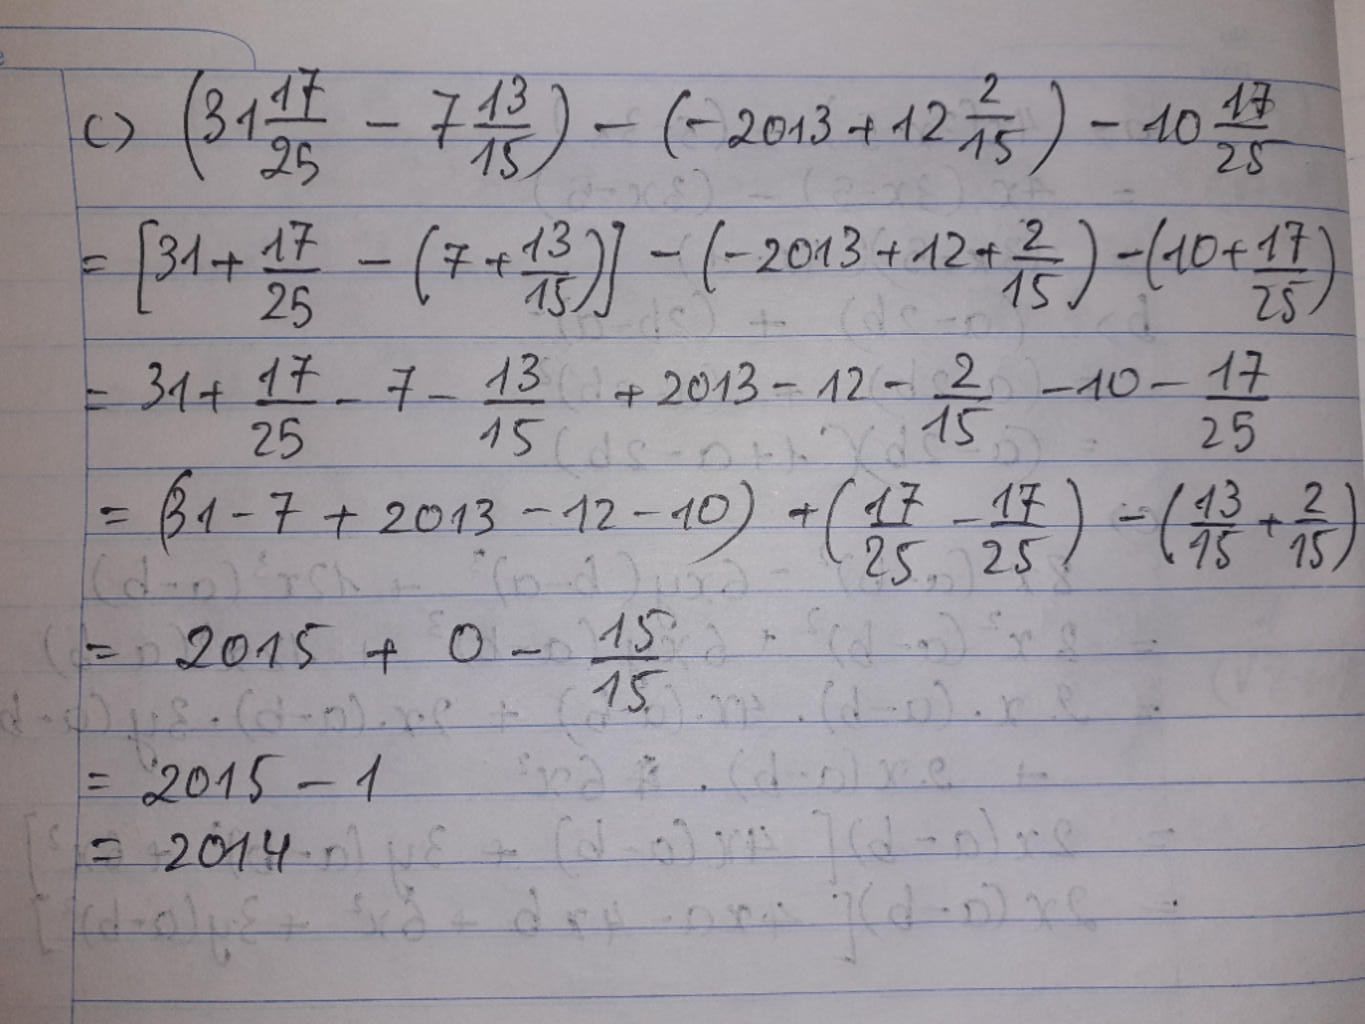 c) (31 17/25 - 7 13/15) - (-2013 + 12 2/15) - 10 17/25
= [31 + 17/25 - (7 + 13/15)] - (-2013 + 12 + 2/15) - (10 + 17/25)
= 31 + 17/25 - 7 - 13/15 + 2013 - 12 - 2/15 - 10 - 17/25
= (31 - 7 + 2013 - 12 - 10) + (17/25 - 17/25) - (13/15 + 2/15)
= 2015 + 0 - 15/15
= 2015 - 1
= 2014